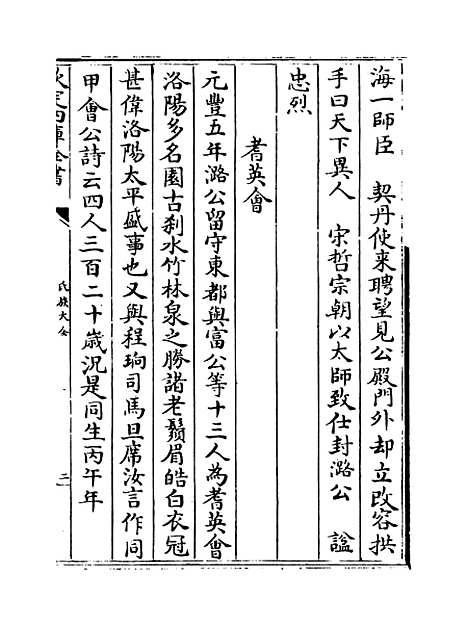 海一師臣　契丹使来聘望見公殿門外却立改容拱
手曰天下異人　宋哲宗朝以太師致仕封潞公　諡
忠烈
耆英㑹
元豐五年潞公留守東都與富公等十三人為耆英㑹
洛陽多名園古刹水竹林泉之勝諸老鬚眉皓白衣冠
甚偉洛陽太平盛事也又與程珦司馬旦席汝言作同
甲會公詩云四人三百二十歳況是同生丙午年
欽定四庫全書
氏族大全
三